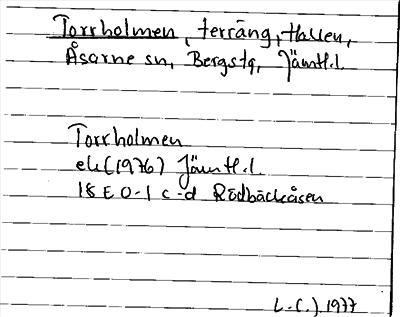 Torrholmen, terräng, Hallen,
Åsarne sn, Bergs tg, Jämtl.l.
Torrholmen
ek (1976) Jämtl.l.
18E 0-1 c-d Rödbäckåsen
L.C.) 1977